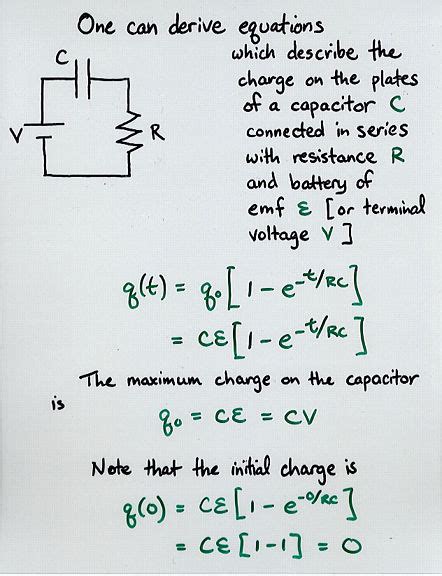 One can derive equations
which describe the
charge on the plates
of a capacitor C
connected in series
with resistance R
and battery of
emf ε [or terminal
voltage V]
C
V
R
q(t) = q₀[1 - e^-t/RC]
= Cε[1 - e^-t/RC]
The maximum charge on the capacitor
is
q₀ = Cε = CV
Note that the initial charge is
q(0) = Cε[1 - e^-0/RC]
= Cε[1-1] = 0